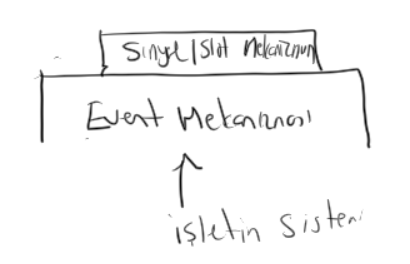 Sinyal/Slot Mekanizması
Event Mekanizması
işletin Sistemi